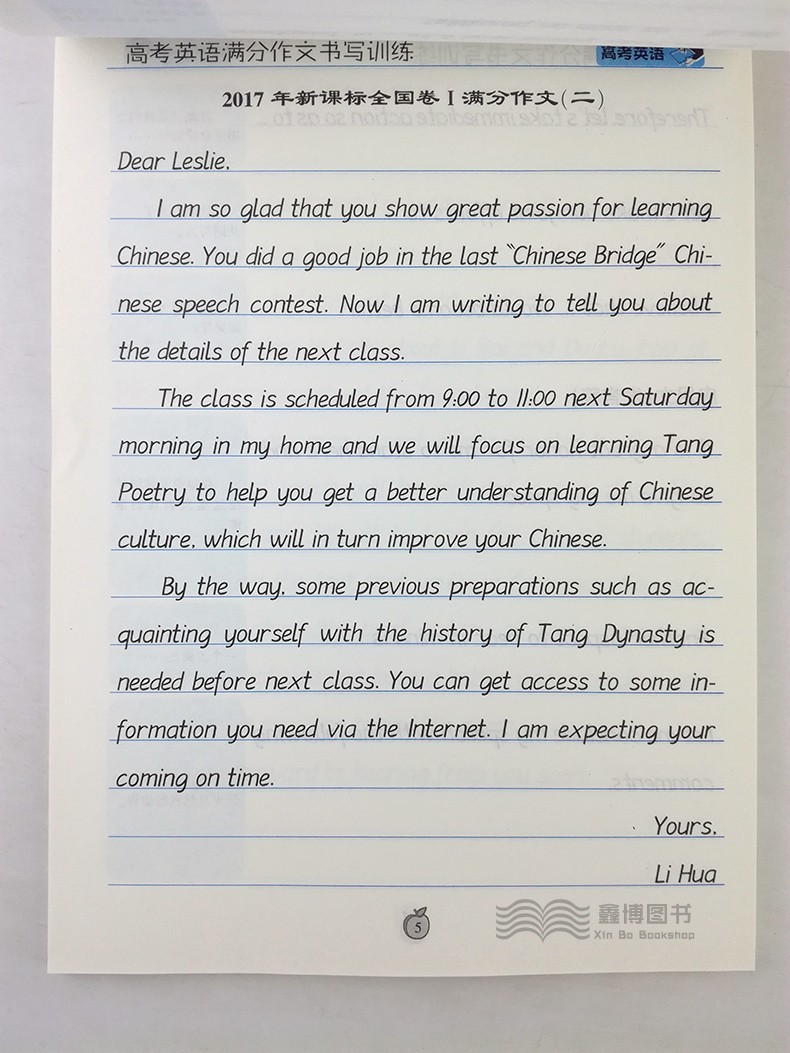 高考英语满分作文书写训练
高考英语
2017 年新课标全国卷 I 满分作文(二)
Dear Leslie,
I am so glad that you show great passion for learning
Chinese. You did a good job in the last "Chinese Bridge" Chi-
nese speech contest. Now I am writing to tell you about
the details of the next class.
The class is scheduled from 9:00 to 11:00 next Saturday
morning in my home and we will focus on learning Tang
Poetry to help you get a better understanding of Chinese
culture, which will in turn improve your Chinese.
By the way, some previous preparations such as ac-
quainting yourself with the history of Tang Dynasty is
needed before next class. You can get access to some in-
formation you need via the Internet. I am expecting your
coming on time.
Yours,
Li Hua
5
鑫博图书
Xin Bo Bookshop